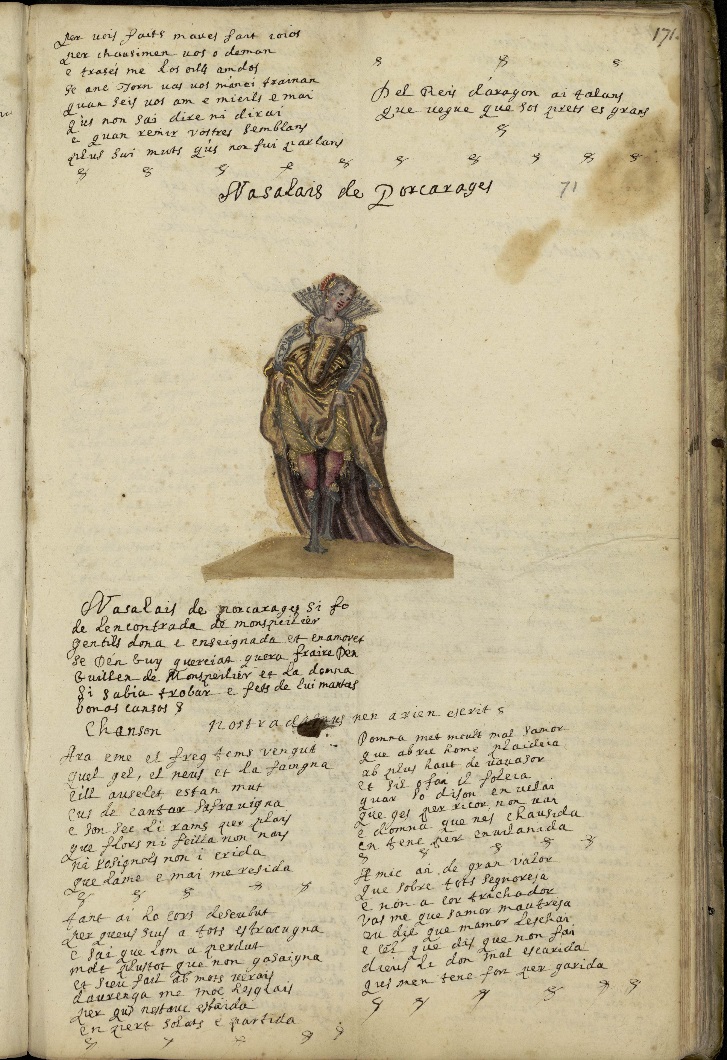 171.
per vois faits maves fait ioios
per chausimen vos o deman
e trasés me los oills amdos
se anc torn vas vos m'anei trainan
quan seis vos am e mieils e mai
qu'is non sai dire ni dirai
e quan remir vostres semblans
plus sui muts qu'is non fui parlans
Del Reis d'aragon ai talans
que vegue que sos prets es grans
Nasalais de Porcarages
71
Nasalais de porcarages si fo
de lencontrada de monspeilier
gentils dona e enseignada et enamoret
se d'en Guy guereiat quera fraire d'en
Guillen de Monspeilier et la donna
si sabia trobar e fets de lui mantas
bonas cansos
Chanson nostradamus nen a rien escrit
Ara eme el freg tems vengut
quel gel, el neus et la faingna
eill auselet estan mut
cus de cantar s'afravigna
e son sec li rams per plais
que flors ni foilla non nais
ni rosignols non i crida
que lame e mai me resida
tant ai lo cors desebut
per queus sius a tots estraugna
e sai que lom a perdut
molt plustot que non gasaigna
et sieu fail ab mots verais
daurenga me moc l'esglais
per qu'e nestauc esbaida
en pert solats e partida
Domna met mcult mal samor
que ab ric home plaideia
ab plus haut de vavasor
et sil o fai il foleia
quar so dison en velai
que ges per ricor non vai
e domna que nes chausida
en tenc per envilanida
Amic ai de gran valor
que sobre tots segnoreia
e non a cor trichador
vas me que samor mautreia
eu dic que mamor leschai
e cel que dis que non fai
dieus li don mal escarida
qu'is men tenc fort per garida